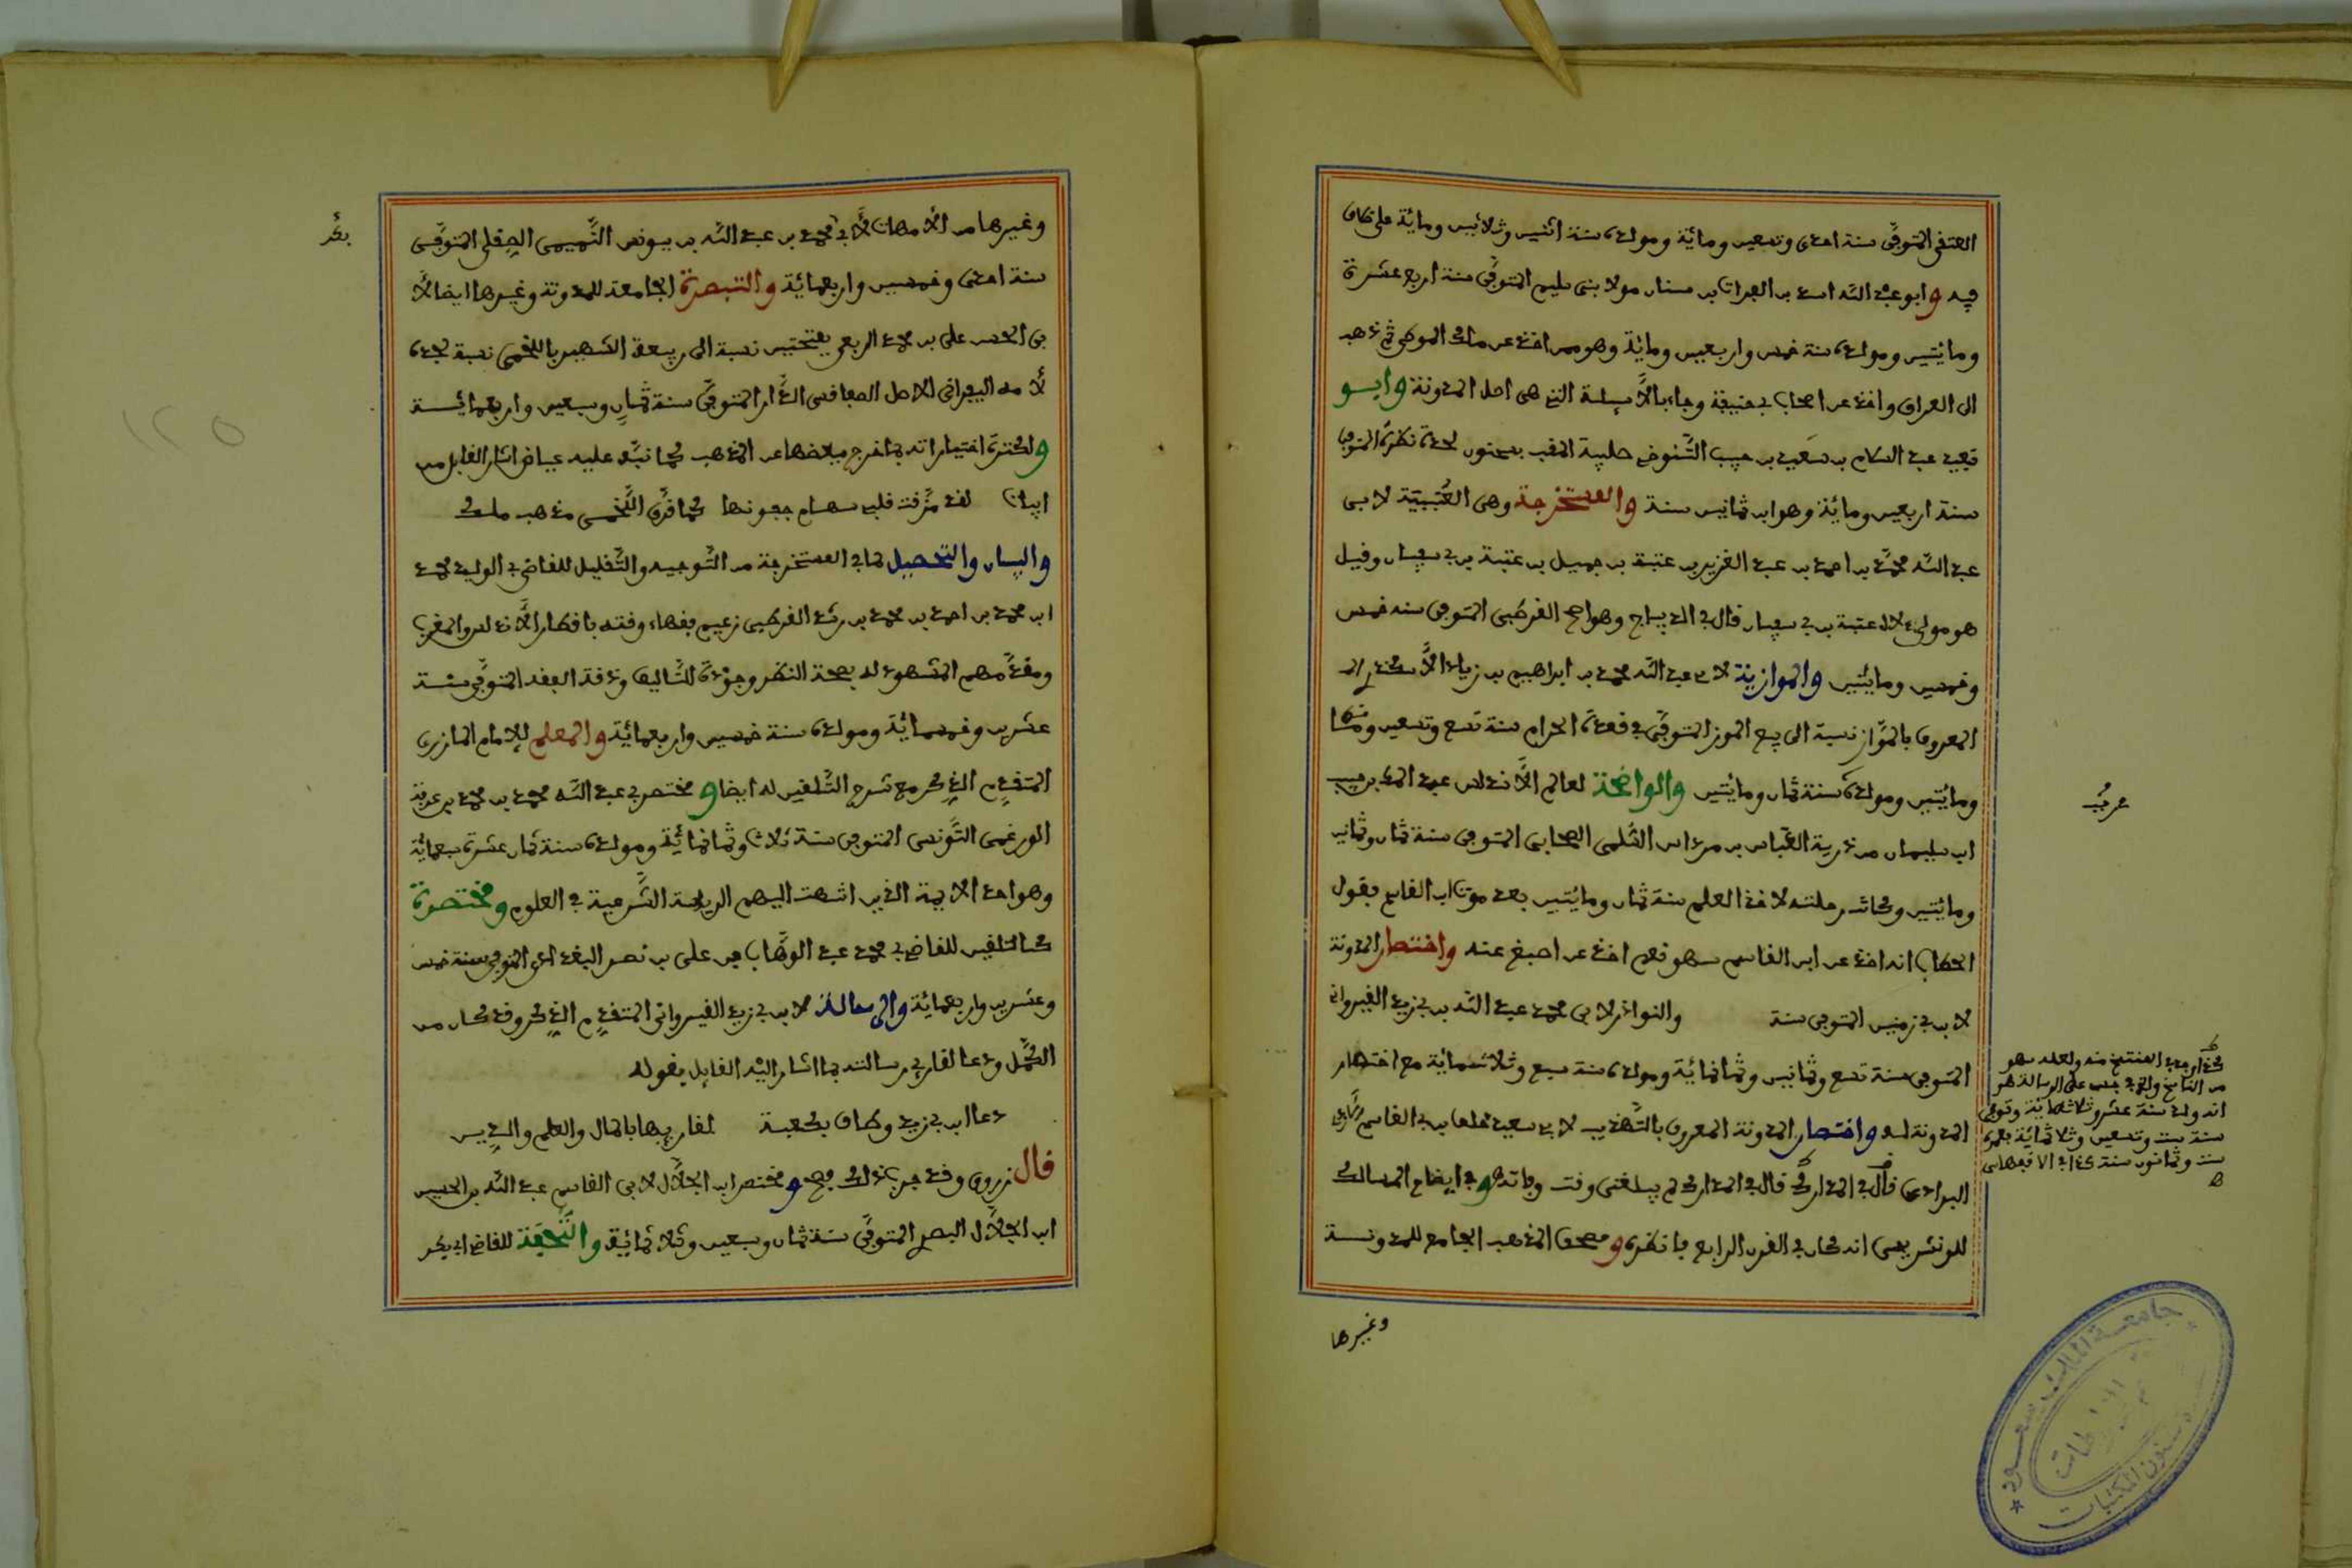 العتقي المتوفى سنة احدى وتسعين ومائة ومولده سنة اثنين وثلاثين ومائة على خلاف
فيه وابو عبد الله اسد بن الفرات بن سنان مولا بني سليم المتوفى سنة اربع عشرة
ومائتين ومولده سنة خمس واربعين ومائة وهو ممن اخذ عن مالك الموطى ثم ذهب
الى العراق واخذ عن اصحاب بي حنيفة وجاء بالاسئلة التي هي اصل المدونة وابو
سعيد عبد السلام بن سعيد بن حبيب التنوخي الملقب بسحنون لحدة نظره المتوفى
سنة اربعين ومائة وهو ابن ثمانين سنة والمستخرجة وهي العتبية لابي
عبد الله محمد بن احمد بن عبد العزيز بن عتبة بن جميل بن عتبة بن بي سفيان وقيل
هو مولى لال عتبة بن بي سفيان قال في الديباج وهو اصح القرطبي المتوفى سنه خمس
وخمسين ومائتين والموازية لابي عبد الله محمد بن ابراهيم بن زياد الاسكندراني
المعروف بالمواز نسبة الى بيع الموز المتوفى في قعدة الحرام سنة تسع وتسعين
ومائتين ومولده سنة ثمان ومائتين والواضحة لعالم الاندلس عبد الملك بن حبيب
ابن سليمان من ذرية العباس بن مرداس السلمي الصحابي المتوفى سنة ثمان وثمانين
ومائتين وكانت رحلته لاخذ العلم سنة ثمان ومائتين بعد موت ابن القاسم فقول
الحطاب انه اخذ عن ابن القاسم سهو نعم اخذ عن اصبغ عنه واختصار المدونة
لابن بي زمنين المتوفى سنة والنوادر لابي محمد عبد الله بن بي زيد القيرواني
المتوفى سنة تسع وثمانين وثمانمائة ومولده سنة سبع وثلاثمائة مع اختصار
المدونة له واختصار المدونة المعروف بالتهذيب لابي سعيد خلف بن بي القاسم
البراذعي قال في المدارك قال في المدارك لم يبلغني وقت وفاته وفي ايضاح المسالك
للونشريسي انه كان في القرن الرابع فانظره ومصحف المذهب الجامع للمدونة
وغيرها
كذا وجد في المنتسخ منه ولعله سهو
من الناسخ والذي في على الرسالة هو
انه ولد سنة عشر وثلاثمائة وتوفي
سنة ست وتسعين وثلاثمائة بعمره
ست وثمانون سنة
وغيرها من الامهات لابي محمد بن عبد الله بن يونس التميمي الصقلي المتوفى
سنة احدى وخمسين واربعمائة والتبصرة الجامعة للمدونة وغيرها ايضا لا
بي الحسن علي بن محمد الربعي بفتحتين نسبة الى ربيعة الشهير باللخمي نسبة لجده
لامه القيرواني الاصل الصفاقسي الدار المتوفى سنة ثمان وسبعين واربعمائة
ولكثرة اختياراته بما اخرج ببعضها عن المذهب كما نبه عليه عياض اشار القايل من
ابيات لقد مزقت قلبي سهام جفونها كما مزق اللخمي مذهب مالك
والبيان والتحصيل لما في المستخرجة من التوجيه والتعليل للقاضي بي الوليد محمد
ابن محمد بن احمد بن محمد بن رشد القرطبي زعيم فقهاء وقته باقطار الاندلس والمغرب
ومقدمهم المشهود له بصحة النظر وجودة التاليف ودقة الفقه المتوفى سنة
عشرين وخمسمائة ومولده سنة خمسين واربعمائة والمعلم للامام المازري
المتقدم الذكر مع شرح التلقين له ايضا ومختصر بي عبد الله محمد بن محمد بن عرفة
الورغمي التونسي المتوفى سنة ثلاث وثمانمائة ومولده سنة ثمان عشرة سبعمائة
وهو احد الايمة الذين انتهت اليهم الرياسة الشرعية في العلوم ومختصرة
كالتلقين للقاضي بي محمد عبد الوهاب بن علي بن نصر البغدادي المتوفى سنة خمس
وعشرين واربعمائة والرسالة لابن بي زيد القيرواني المتقدم الذكر وقد كان من
الكمل ودعا لقارئ رسالته بما اشار اليه القايل بقوله
دعا ابن بي زيد وطاف بكعبة لقاريها بالمال والعلم والدين
قال زروق وقد جرب ذلك فصح ومختصر ابن الجلاب لابي القاسم عبد الله بن الحسين
ابن الجلاب البصري المتوفى سنة ثمان وسبعين وثلاثمائة والتحفة للقاضي ابي بكر
بكر
١٢٥
جامعة الملك سعود
شئون المكتبات